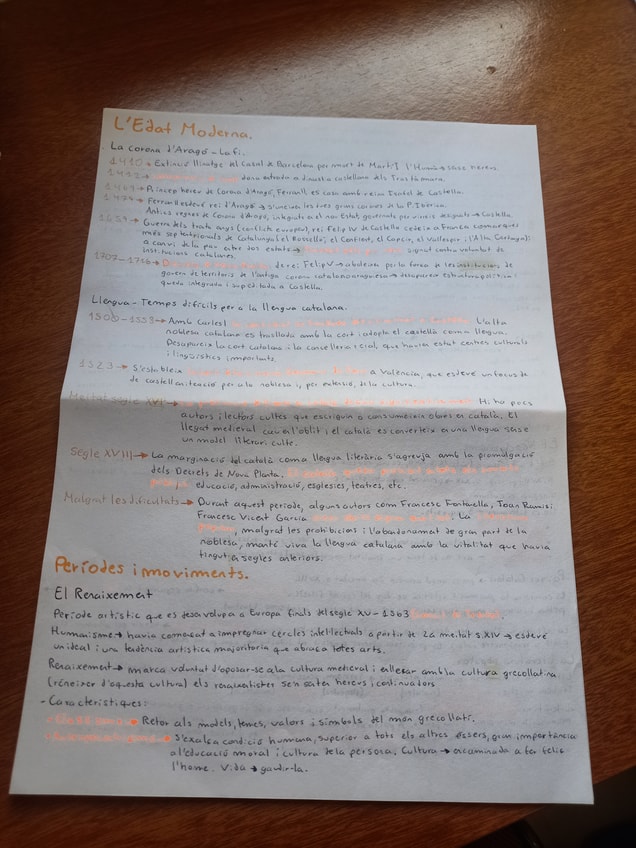 L'Edat Moderna.
La corona d'Aragó - La fi.
1410 → Extinció llinatge del Casal de Barcelona per mort de Martí I l'Humà → sense hereus.
1412 → dona entrada a dinastia castellana dels Trastàmara.
1469 → Príncep hereu de Corona d'Aragó, Ferran II es casa amb reina Isabel de Castella.
1479 → Ferran II esdevé rei d'Aragó → s'uneixen les tres grans corones de la P. Ibèrica.
Antics regnes de Corona d'Aragó, integrats al nou Estat governats per virreis designats → Castella.
1659 → Guerra dels trenta anys (conflicte europeu), rei Felip IV de Castella cedeix a França comarques
més septentrionals de Catalunya (el Rosselló, el Conflent, el Capcir, el Vallespir i l'Alta Cerdanya)
a canvi de la pau entre dos estats → signat contra voluntat de
institucions catalanes.
1707-1716 → de rei Felip V → aboleixen per la força de les institucions de
govern de territoris de l'antiga corona catalanoaragonesa → desapareix estructura política i
queda integrada i supeditada a Castella.
Llengua - Temps difícils per a la llengua catalana.
→ Amb Carles I L'alta
noblesa catalana es trasllada amb la cort i adopta el castellà com a llengua.
Desapareix la cort catalana i la cancelleria reial, que havien estat centres culturals
i lingüístics importants.
1523 → S'estableix a València, que esdevé un focus de
de castellanització per a la noblesa i, per extensió, de la cultura.
Meitat segle XVI → Hi ha pocs
autors i lectors cultes que escriguin o consumeixin obres en català. El
llegat medieval cau en l'oblit i el català es converteix en una llengua sense
un model literari culte.
Segle XVIII → La marginació del català com a llengua literària s'agreuja amb la promulgació
dels Decrets de Nova Planta. educació, administració, esglésies, teatres, etc.
Malgrat les dificultats → Durant aquest període, alguns autors com Francesc Fontanella, Joan Ramis i
Francesc Vicent Garcia La
malgrat les prohibicions i l'abandonament de gran part de la
noblesa, manté viva la llengua catalana amb la vitalitat que havia
tingut a segles anteriors.
Períodes i moviments.
El Renaixement
Període artístic que es desenvolupa a Europa finals del segle XV - 1563
Humanisme → havia començat a impregnar cercles intel·lectuals a partir de 2a meitat s. XIV → esdevé
un ideal i una tendència artística majoritària que abraça totes arts.
Renaixement → marca voluntat d'oposar-se a la cultura medieval i enllaçar amb la cultura grecollatina
(renéixer d'aquesta cultura) els renaixentistes se'n saben hereus i continuadors
- Característiques:
Retor als models, temes, valors i símbols del món grecollatí.
→ S'exalça condició humana, superior a tots els altres éssers, gran importància
a l'educació moral i cultura de la persona. Cultura → encaminada a fer feliç
l'home. Vida → gaudir-la.